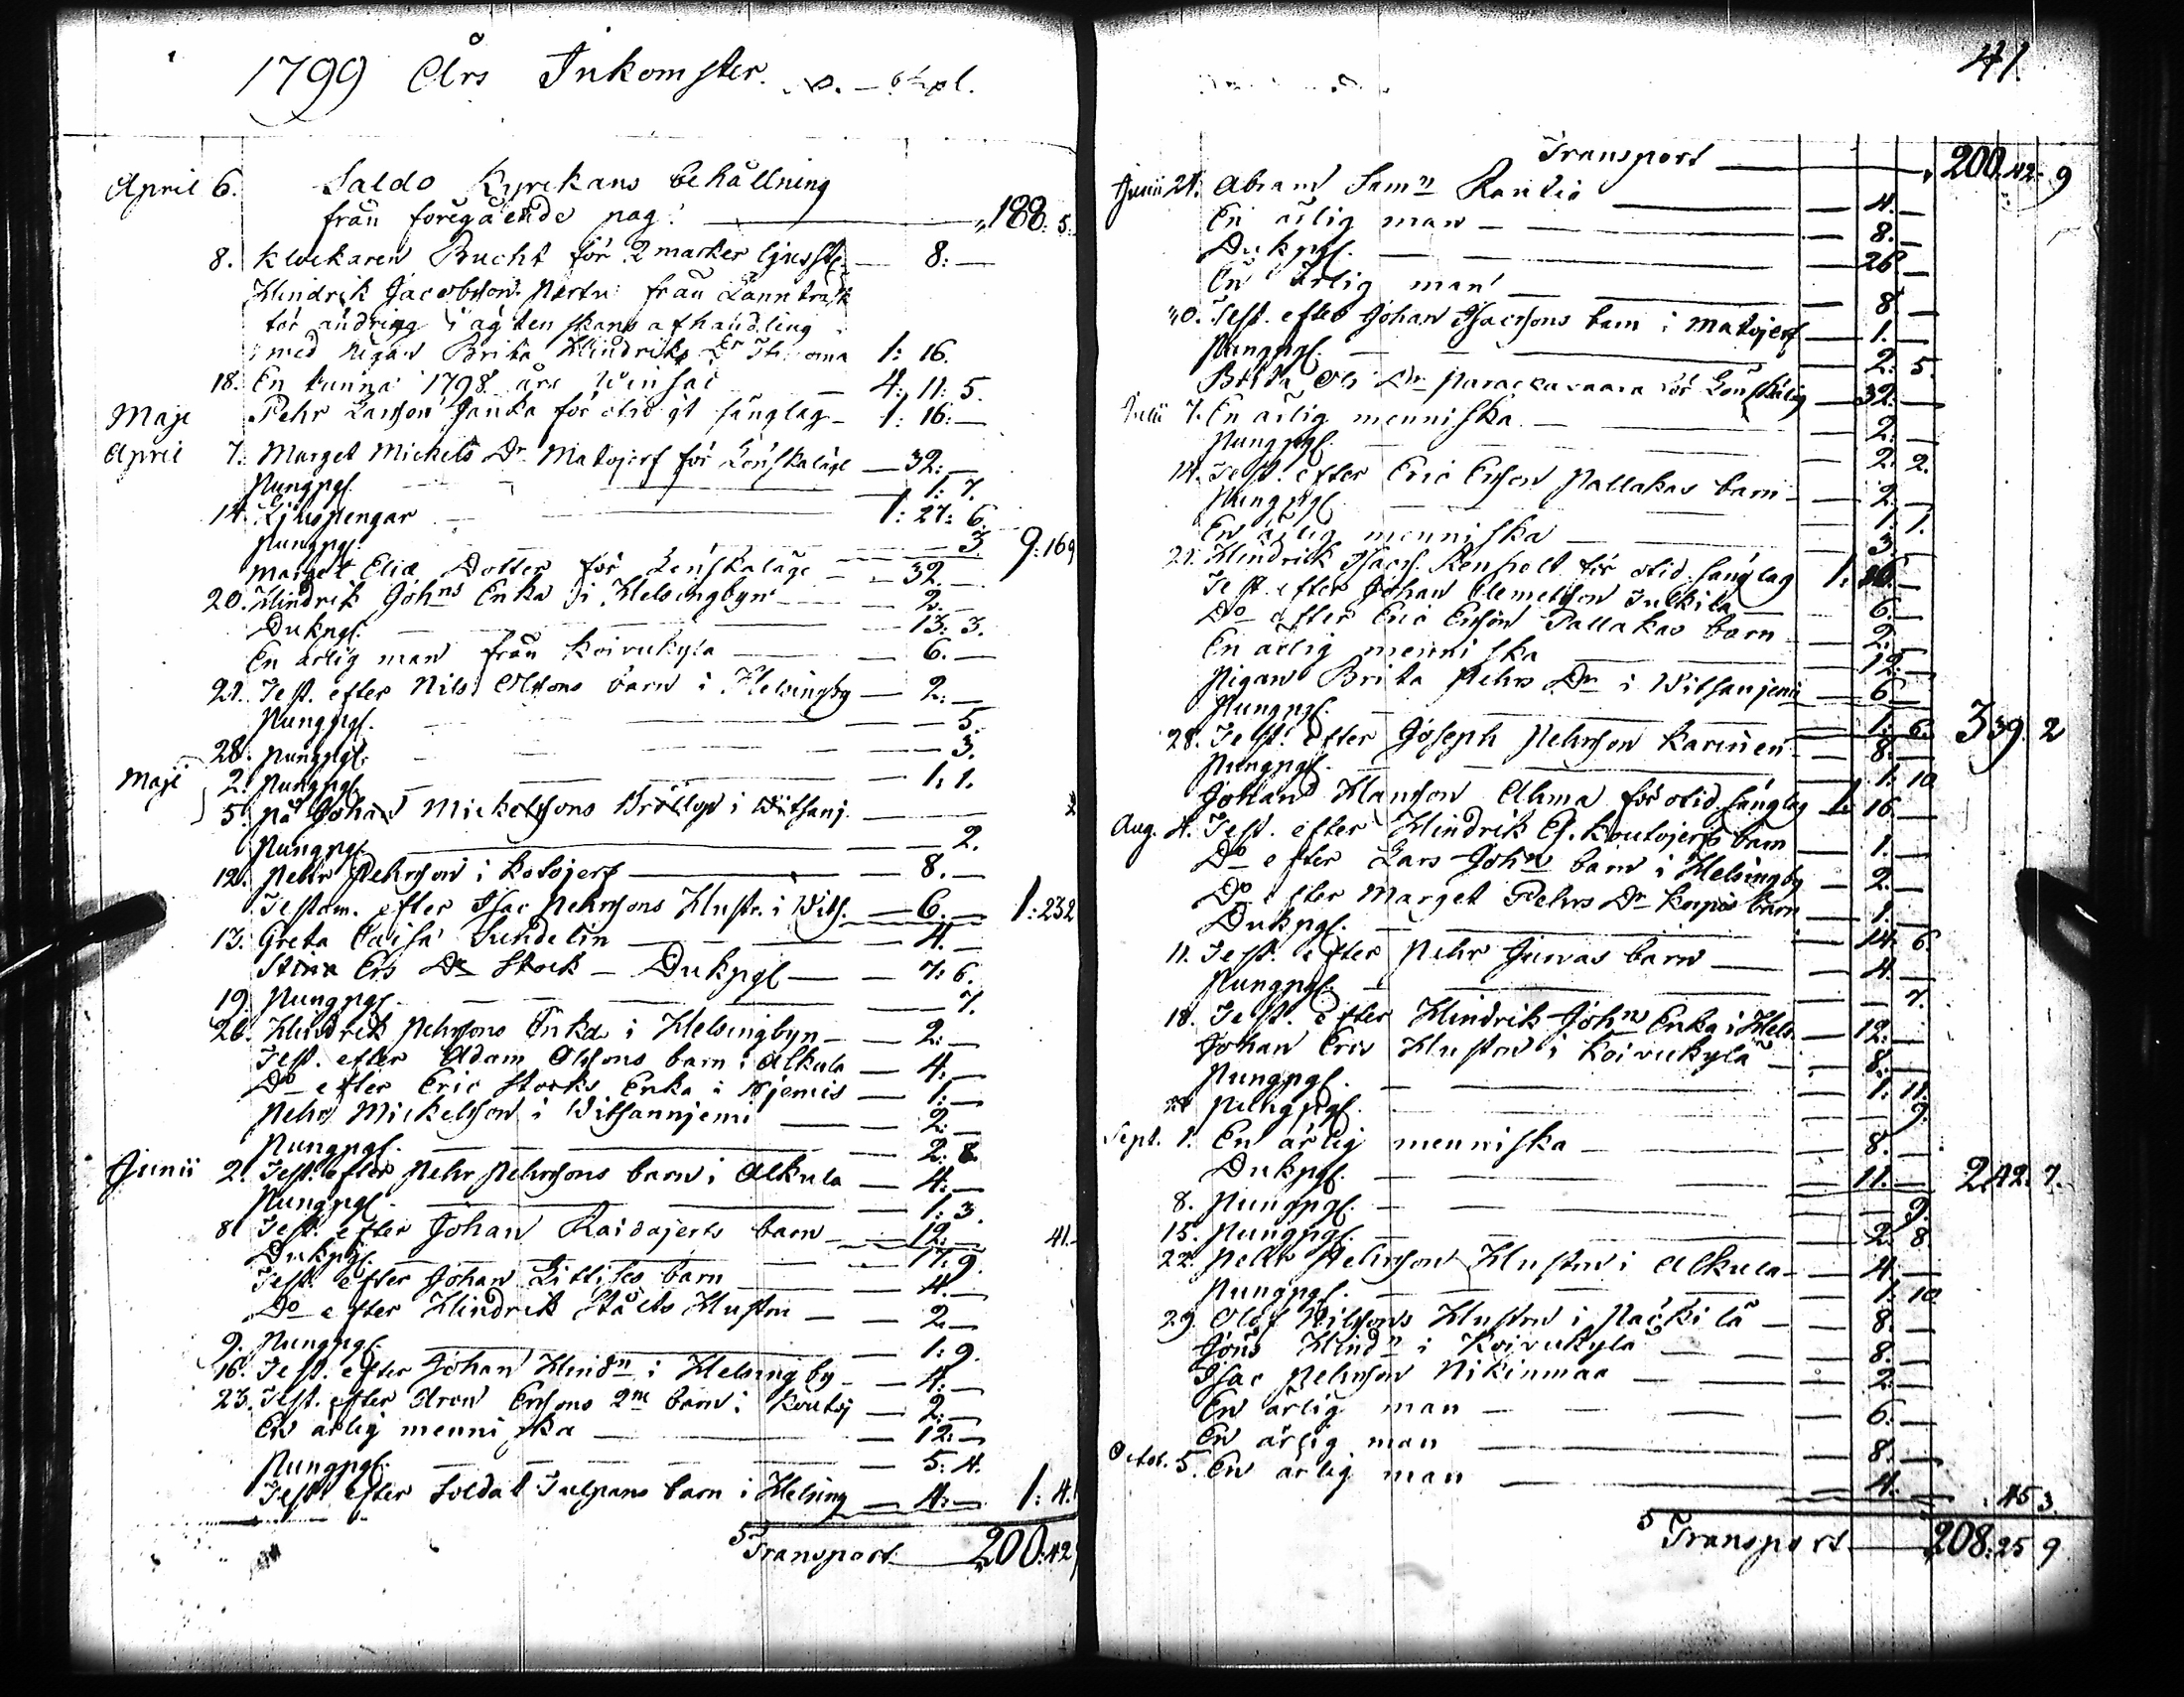 1799 Års Inkomster.
April 6. Saldo Kyrkans behållning
från föregående pag. 188: 5.
8. Klockaren Bucht för 2 marker ljus 8:—
Hindrik Jacobsson från
för ändring i ägtenskaps afhandling
med Pigan Brita Hindriks Dr 1: 16.
18. En tunna 1798 års 4: 11: 5.
Maji Pehr Larsson Janka för otidigt sänglag — 1: 16:—
April 7. Marget Mickels Dr Matojerf för Lönskaläge — 32:—
Pungpgr. 1: 7.
14. Ljuspengar 1: 27: 6.
Pungpgr. 3. 9: 16 9
Marget Eliæ Dotter för Lönskaläge — 32.—
20. Hindrik Johns Enka i Helsingbyn — 2.—
Dukpgr. 13: 3.
En ärlig man från Koivukylä — 6.—
21. Test. efter Nils Olssons barn i Helsingby — 2:—
Pungpgr. 5.
28. Pungpgr. 3.
Maji 2. Pungpgr. 1: 1.
5. på Johan Mickelssons Bröllop i Witsanj.
Pungpgr. 2.
12. Pehr Pehrsson i Koutojerf — 8.—
Testam. efter Isac Pehrssons Hustr. i Wits. — 6.— 1: 23 2
13. Greta Caisa Sundelin — 4.—
Stina Ers Dr Stock — Dukpgr — 7: 6.
19. Pungpgr. 7.
26. Hindrik Pehrssons Enka i Helsingbyn — 2:—
Test. efter Adam Olssons barn i Alkula — 4:—
Do efter Eric Stocks Enka i Njemis — 1:—
Pehr Mickelsson i Witsannjemi — 2:—
Pungpgr. 2: 8.
Junii 2. Test. efter Pehr Pehrssons barn i Alkula — 4:—
Pungpgr. 1: 3.
8. Test. efter Johan Raidajerfs barn — 12:— 41.
Dukpgr. 17: 9.
Test. efter Johan barn 4.—
Do efter Hindrik Ståhls Hustru — 2.—
9. Pungpgr. 1: 9.
16. Test. efter Johan Hindn i Helsingby — 4.—
23. Test. efter Aron Erssons 2ne barn i Koutoj — 2:—
En ärlig menniska — 12:—
Pungpgr. 5. 4.
Test. efter Soldat Tulpans barn i Helsing — 4:— 1: 4.
Transport. 200: 42
41.
Transport 200. 42. 9
Junii 24. Abram Samn Rantio — 4.—
En ärlig man — 8.—
Dukpgr. 26.—
En ärlig man — 8.—
30. Test. efter Johan Isacssons barn i Matojerf — 1.—
Pungpgr. 2: 5.
Brita Ols Dr för Lönskaläg — 32:—
Julii 7. En ärlig menniska — 2:—
Pungpgr. 2: 2.
14. Test. efter Eric Ersson Pallakas barn — 2:—
Pungpgr. 1: 1.
En ärlig menniska — 3.—
21. Hindrick Isacss. för otid. sänglag 1: 16.—
Test. efter Johan Clemetsson Juckila — 6.—
Do efter Eric Ersson Pallakas barn — 2:—
En ärlig menniska — 12.—
Pigan Brita Pehrs Dr i Witsanjemi — 6.—
Pungpgr. 1: 6. 3 39. 2
28. Test. efter Joseph Pehrsson Karinen — 8.—
Pungpgr. 1: 10
Johan Hansson Alama för otid. sänglag 1: 16.—
Aug. 4. Test. efter Hindrik Es. Koutojerfs barn — 1.—
Do efter Lars Johns barn i Helsingby — 2.—
Do efter Marget Pehrs Dr barn — 1.—
Dukpgr. 14. 6.
11. Test. efter Pehr Junvas barn — 4.—
Pungpgr. 7.
18. Test. efter Hindrik Johns Enka i Hels. — 12.—
Johan Ers Hustru i Koivukylä — 8.—
Pungpgr. 1: 11.
Pungpgr. 9.
Sept. 1. En ärlig menniska — 8.—
Dukpgr. 11.— 2 42. 7.
8. Pungpgr. 9.
15. Pungpgr. 2. 8.
22. Pehr Pehrsson Hustru i Alkula — 4.—
Pungpgr. 1: 10
29. Olof Nilssons Hustru i Päckilä — 8.—
Jöns Hindn i Koivukylä — 8.—
Isac Pehrsson Nikinmaa — 2.—
En ärlig man — 6.—
En ärlig man — 8.—
Octob. 5. En ärlig man — 4.— 45 3.
Transport. 208: 25 9